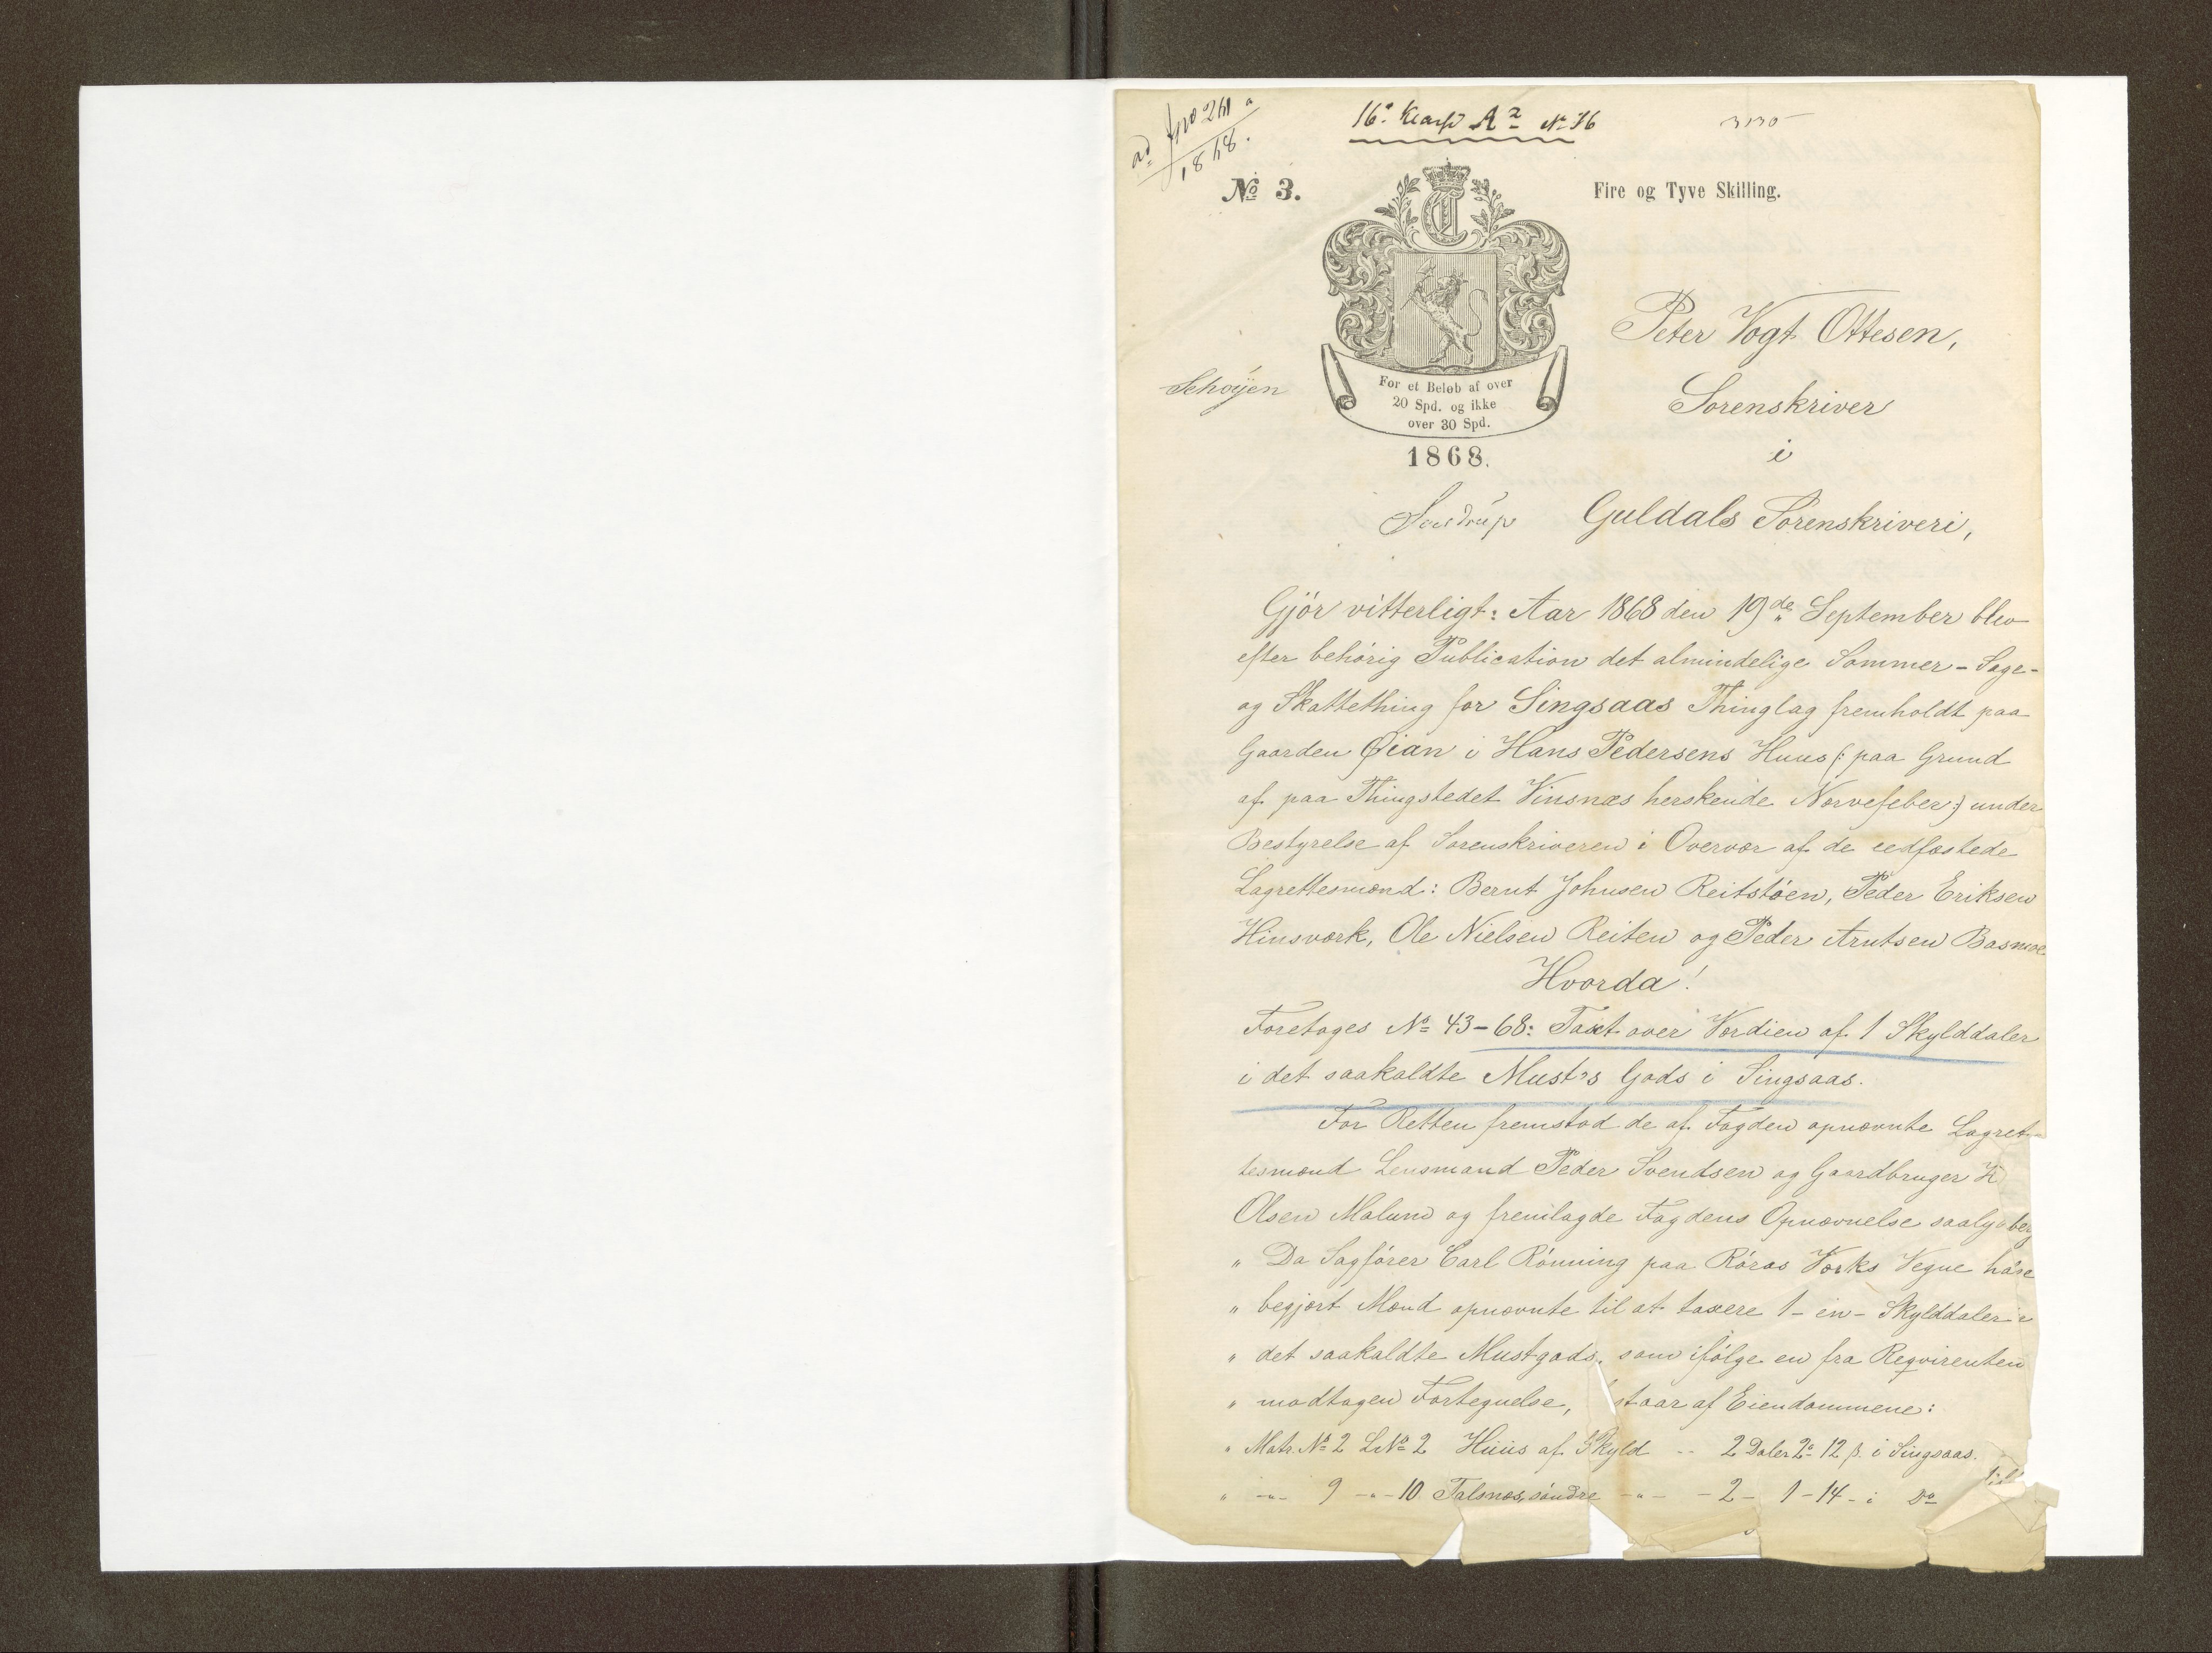 ad Jno 241 a
1868.
16de Klasse A2 № 76
3130
№ 3.
Fire og Tyve Skilling.
Peter Vogt Ottesen,
Schøyen
For et Beløb af over
20 Spd. og ikke
over 30 Spd.
Sorenskriver
1868.
i
Guldals Sorenskriveri,
Gjör vitterligt: Aar 1868 den 19de September blev
efter behörig Publication det almindelige Sommer-Sage-
og Skattething for Singsaas Thinglag fremholdt paa
Gaarden Øian i Hans Pedersens Huus (: paa Grund
af paa Thingstedet Vinsnæs herskende Nervefeber :) under
Bestyrelse af Sorenskriveren i Overvær af de eedfæstede
Lagrettesmænd: Bernt Johnsen Reitstöen, Peder Eriksen
Hinsværk, Ole Nielsen Reiten og Peder Arntsen Basmoe
Hvorda!
Foretages № 43-68: Taxt over Værdien af 1 Skylddaler
i det saakaldte Must's Gods i Singsaas.
For Retten fremstod de af Fogden opnævnte Lagret-
tesmænd Lensmand Peder Svendsen og Gaardbruger
Olsen Malum og fremlagde Fogdens Opnævnelse
" Da Sagförer Carl Rönning paa Röros Værks Vegne har
" begjært Mænd opnævnte til at taxere 1 - en - Skylddaler i
" det saakaldte Mustgods, som ifölge en fra Reqvirenten
" modtagen Fortegnelse, staar af Eiendommene:
" Matr. № 2 L№ 2 Huus af Skyld -- 2 Daler 2 12 ß. i Singsaas.
" -"- 9 -"- 10 Talsnæs, söndre -"- - 2 - 1 - 14 - i Do